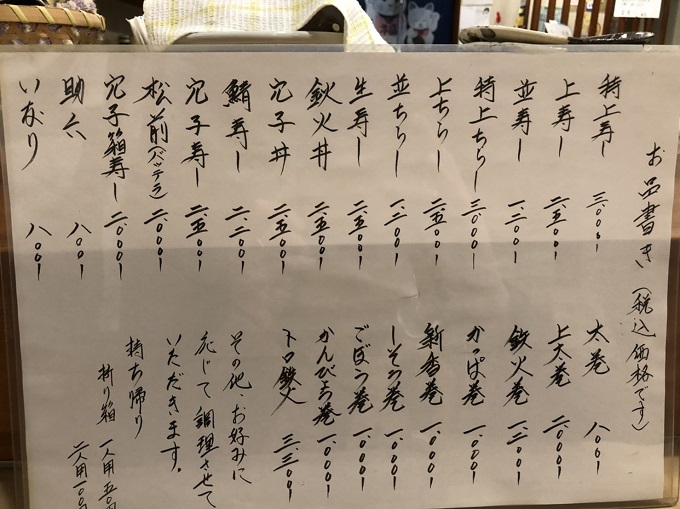 お品書き(税込価格です)
特上寿し 三、〇〇〇ー
上寿し 二、五〇〇ー
並寿し 一、二〇〇ー
特上ちらし 三、〇〇〇ー
上ちらし 二、五〇〇ー
並ちらし 一、二〇〇ー
生寿し 二、五〇〇ー
鉄火丼 二、五〇〇ー
穴子丼 二、五〇〇ー
鯖寿し 二、二〇〇ー
穴子寿し 二、五〇〇ー
松前(バッテラ) 二、〇〇〇ー
穴子箱寿し 二、〇〇〇ー
助六 八〇〇ー
いなり 八〇〇ー
太巻 八〇〇ー
上太巻 二、〇〇〇ー
鉄火巻 一、二〇〇ー
かっぱ巻 一、〇〇〇ー
新香巻 一、〇〇〇ー
しそ巻 一、〇〇〇ー
ごぼう巻 一、〇〇〇ー
かんぴょう巻 一、〇〇〇ー
トロ鉄火 三、三〇〇ー
その他、お好みに
応じて調理させて
いただきます。
持ち帰り
折り箱 一人用 五〇
二人用 一〇〇